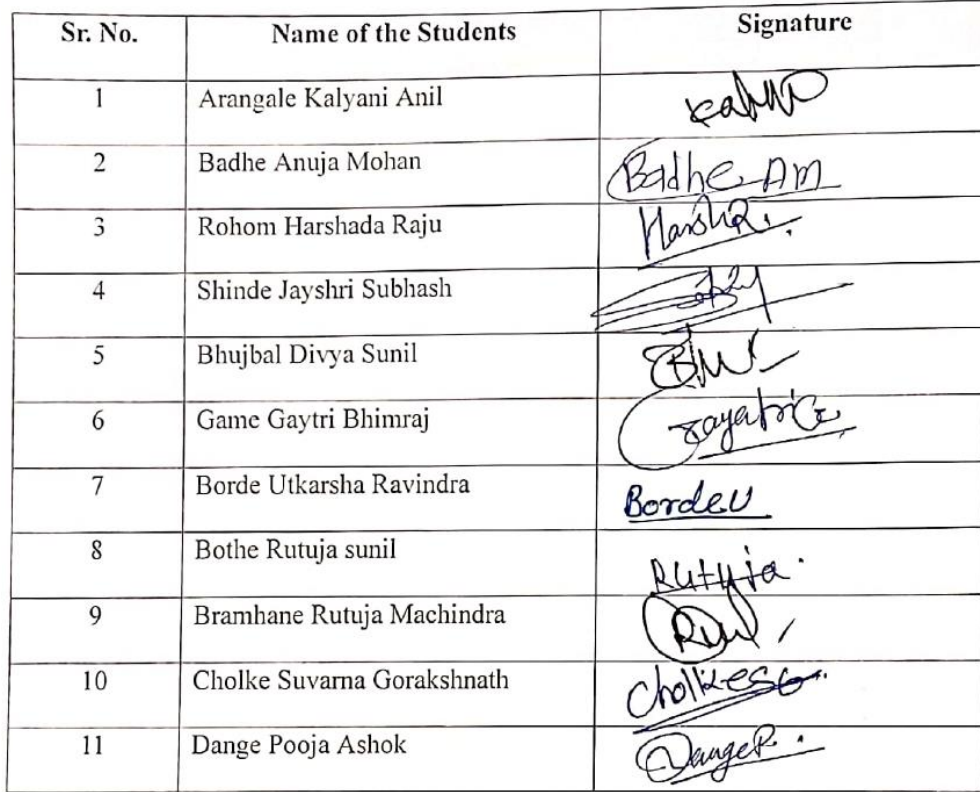 Sr. No. Name of the Students Signature
1 Arangale Kalyani Anil
2 Badhe Anuja Mohan Badhe AM
3 Rohom Harshada Raju
4 Shinde Jayshri Subhash
5 Bhujbal Divya Sunil
6 Game Gaytri Bhimraj GayatriG
7 Borde Utkarsha Ravindra BordeU
8 Bothe Rutuja sunil Rutuja.
9 Bramhane Rutuja Machindra
10 Cholke Suvarna Gorakshnath CholkeSG.
11 Dange Pooja Ashok DangeP.